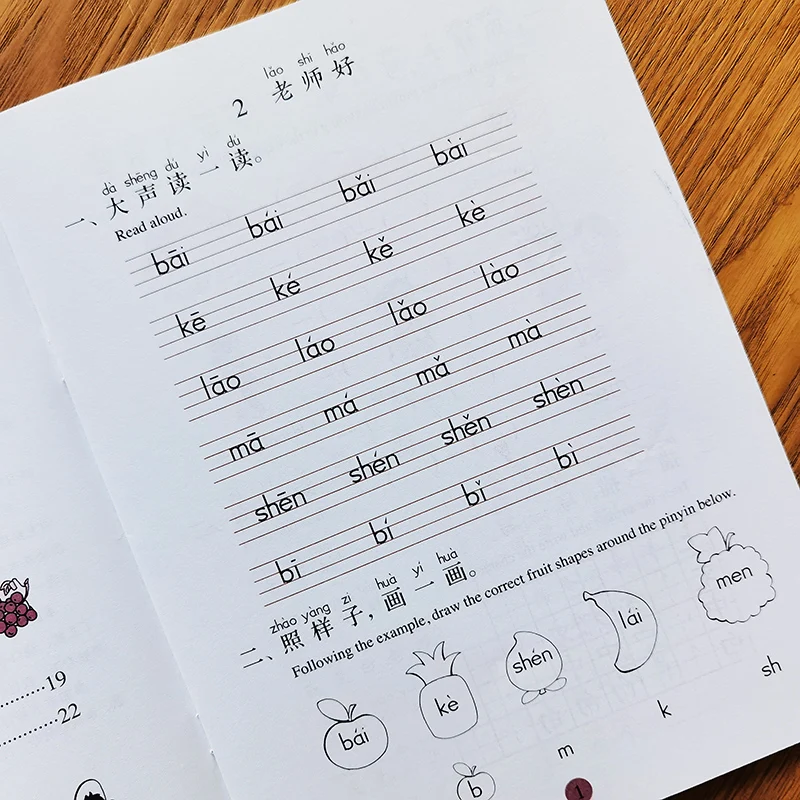 lǎo shī hǎo
2 老师好
dà shēng dú yì dú
一、大声读一读。
Read aloud.
bāi bái bǎi bài
kē ké kě kè
lāo láo lǎo lào
mā má mǎ mà
shēn shén shěn shèn
bī bí bǐ bì
zhào yàng zi huà yí huà
二、照样子，画一画。
Following the example, draw the correct fruit shapes around the pinyin below.
bái kè shén lái men
b m k sh
1
19
22